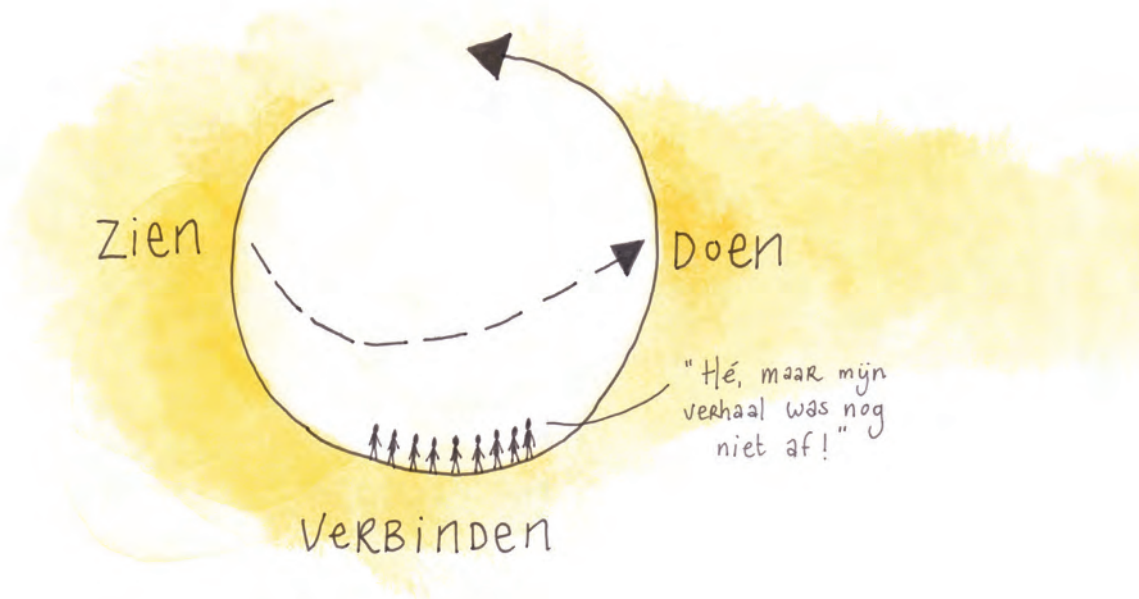 Zien
Doen
"Hé, maar mijn
verhaal was nog
niet af!"
Verbinden